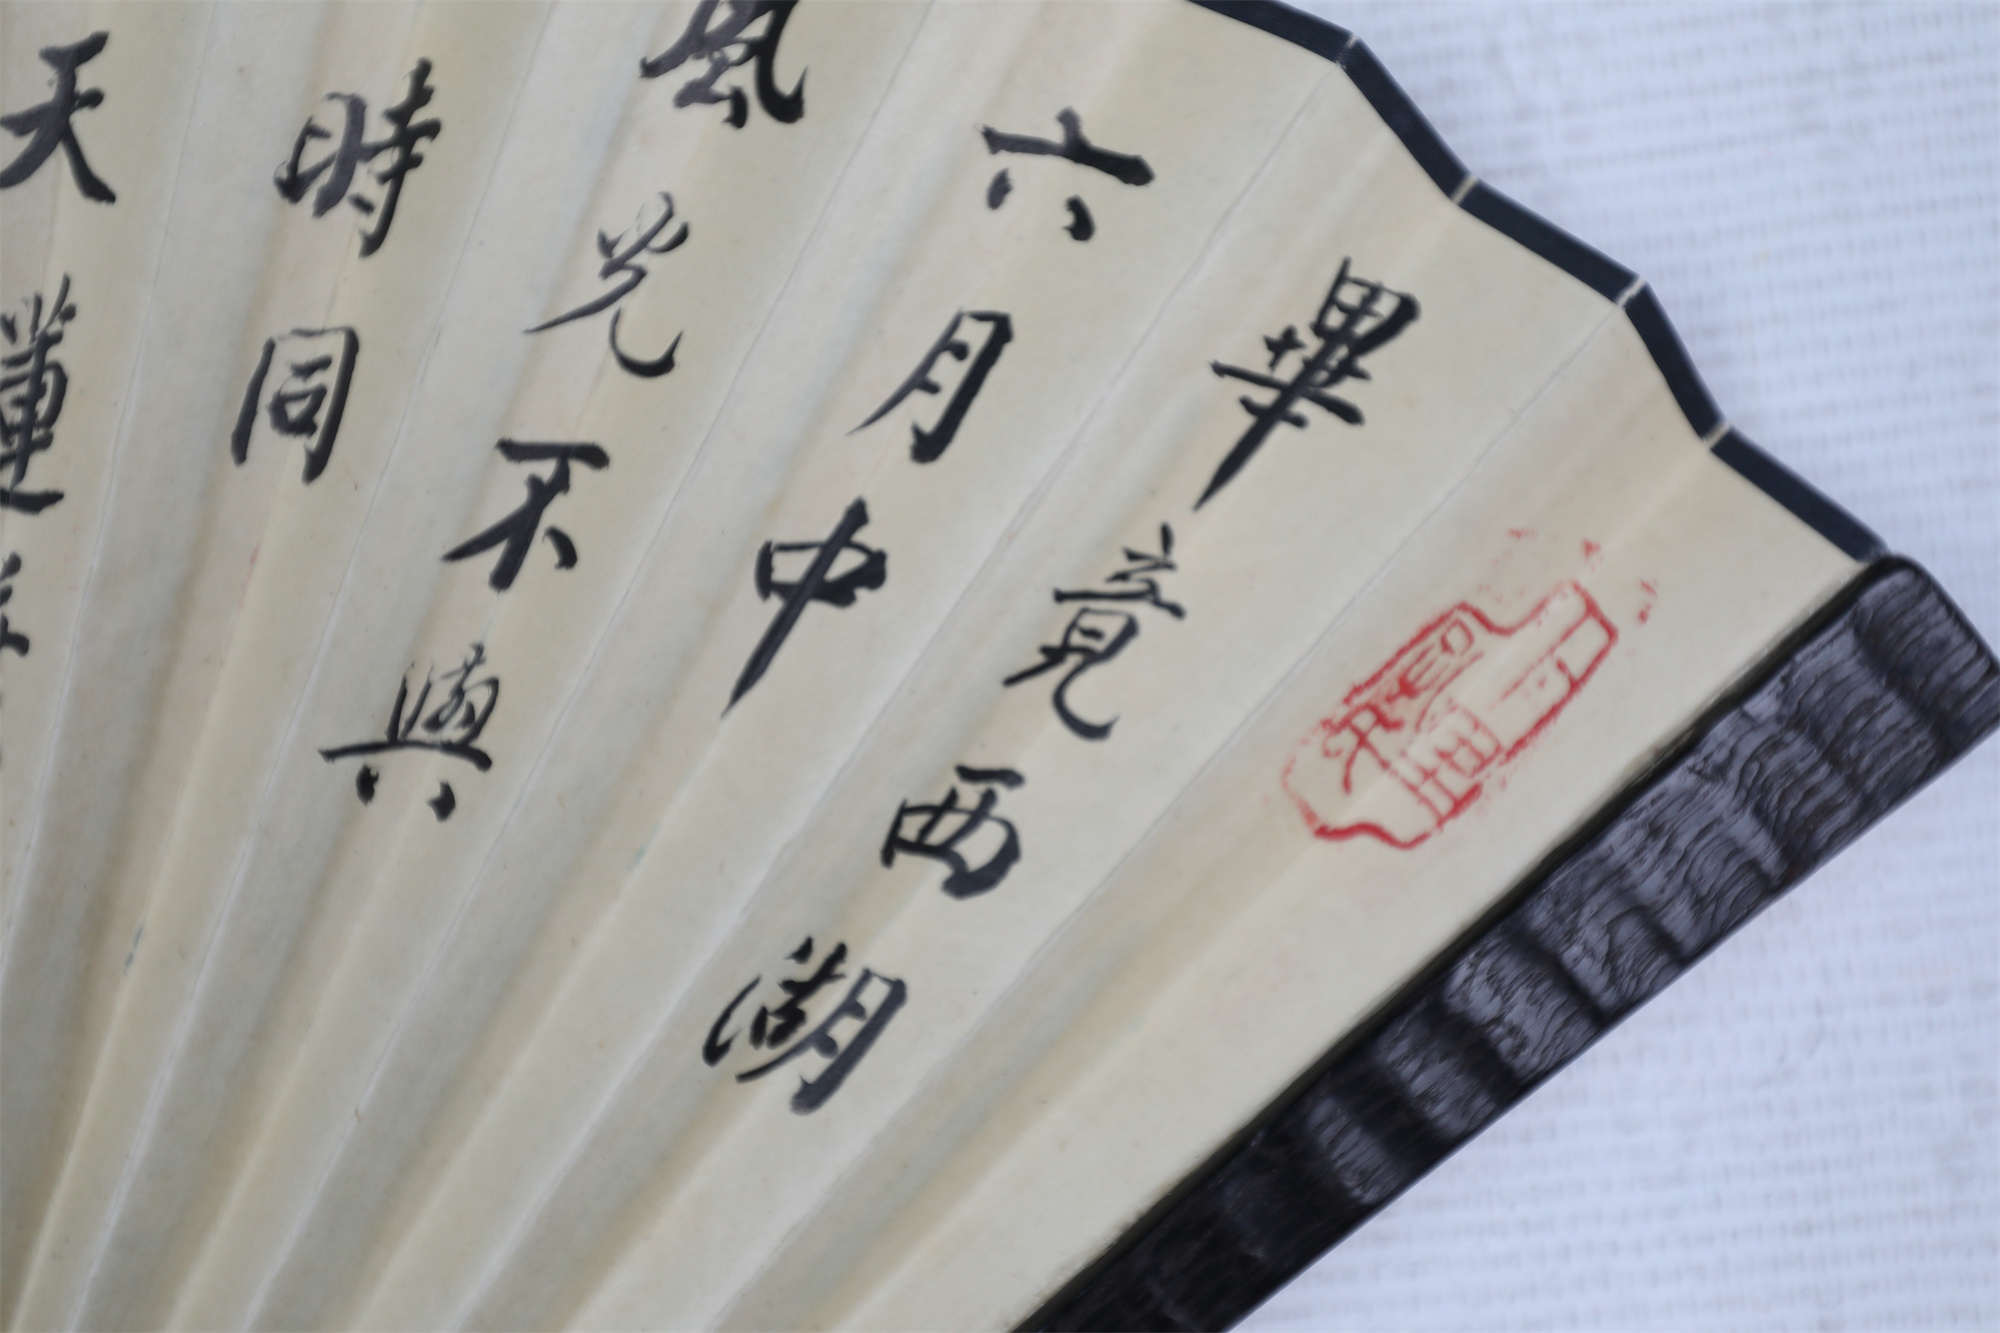 畢竟西湖
六月中
風光不與
時同
天蓮